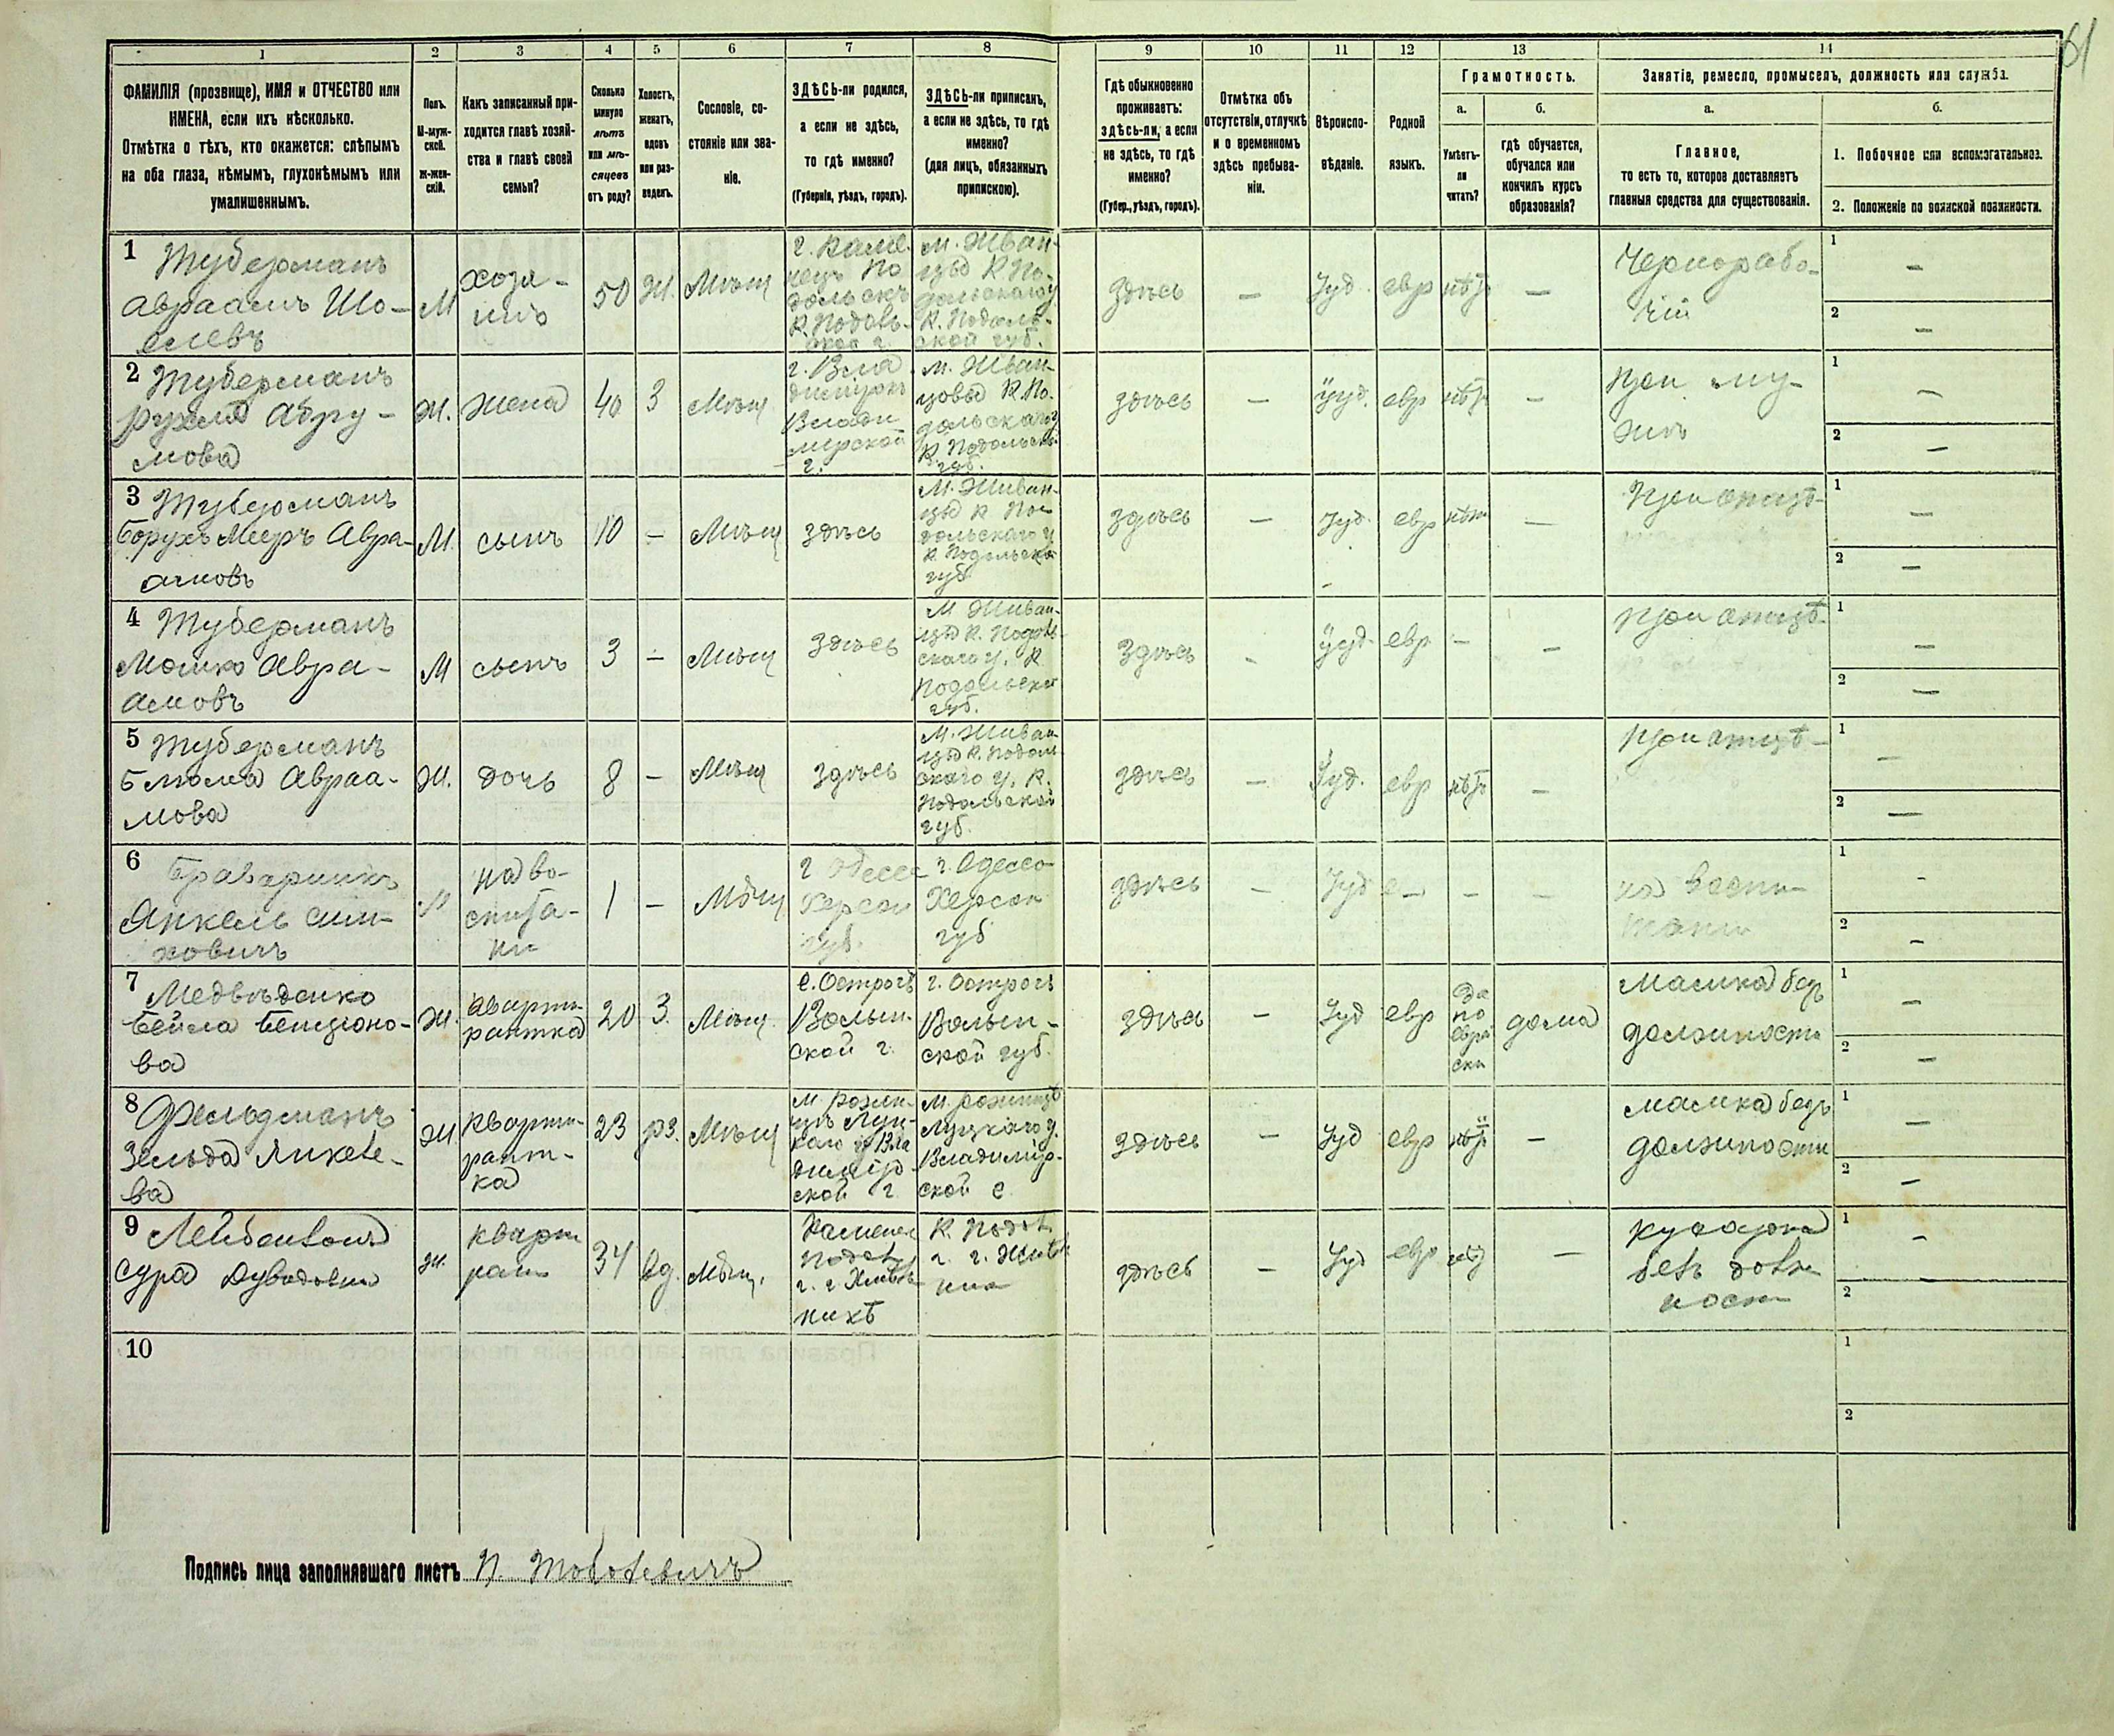 61
1 2 3 4 5 6 7 8 9 10 11 12 13 14
ФАМИЛІЯ (прозвище), ИМЯ и ОТЧЕСТВО или
ИМЕНА, если ихъ нѣсколько.
Отмѣтка о тѣхъ, кто окажется: слѣпымъ
на оба глаза, нѣмымъ, глухонѣмымъ или
умалишеннымъ.
Полъ.
М-муж-
ской.
ж-жен-
скій.
Какъ записанный при-
ходится главѣ хозяй-
ства и главѣ своей
семьи?
Сколько
минуло
лѣтъ
или мѣ-
сяцевъ
отъ роду?
Холостъ,
женатъ,
вдовъ
или раз-
веденъ.
Сословіе, со-
стояніе или зва-
ніе.
ЗДѢСЬ-ли родился,
а если не здѣсь,
то гдѣ именно?
(Губернія, уѣздъ, городъ).
ЗДѢСЬ-ли приписанъ,
а если не здѣсь, то гдѣ
именно?
(для лицъ, обязанныхъ
припискою).
Гдѣ обыкновенно
проживаетъ:
здѣсь-ли, а если
не здѣсь, то гдѣ
именно?
(Губер., уѣздъ, городъ).
Отмѣтка объ
отсутствіи, отлучкѣ
и о временномъ
здѣсь пребыва-
ніи.
Вѣроиспо-
вѣданіе.
Родной
языкъ.
Грамотность.
а.
Умѣетъ-
ли
читать?
б.
гдѣ обучается,
обучался или
кончилъ курсъ
образованія?
Занятіе, ремесло, промыселъ, должность или служба.
а.
Главное,
то есть то, которое доставляетъ
главныя средства для существованія.
б.
1. Побочное или вспомогательное.
2. Положеніе по воинской повинности.
1 Туберманъ
Авраамъ Шо-
елевъ
М
хозя-
инъ
50
Ж.
Мѣщ
г. Каме
нецъ По
дольскъ
К. Подоль-
ской г.
м. Жван-
цы К. По-
дольскаго у
К. Подоль-
ской губ.
здѣсь
—
Іуд.
евр
нѣтъ
—
Чернорабо-
чій
1 —
2 —
2 Туберманъ
Рухля Абру-
мова
Ж.
жена
40
З
Мѣщ
г. Вла
димиръ
Влади
мірской
г.
м. Жван-
цовы К. По-
дольскаго у
К. Подольск.
губ.
здѣсь
—
Іуд.
евр
нѣтъ
—
При му-
жѣ
1 —
2 —
3 Туберманъ
Борухъ Мееръ Авра-
амовъ
М.
сынъ
10
—
Мѣщ
здѣсь
М. Жван-
цы К По-
дольскаго у
К Подольской
губ
здѣсь
—
Іуд.
евр
нѣтъ
—
При отцѣ
1 —
2 —
4 Туберманъ
Мошко Авра-
амовъ
М
сынъ
3
—
Мѣщ
здѣсь
М Жван-
цы К. Подоль-
скаго у. К
Подольской
губ.
здѣсь
-
Іуд.
евр
—
—
При отцѣ
1 —
2 —
5 Туберманъ
Блюма Авраа-
мова
Ж.
дочь
8
—
Мѣщ
здѣсь
М. Жван
цы К. Подол
скаго у. К.
Подольской
губ.
здѣсь
—
Іуд.
евр
нѣтъ
—
При отцѣ
1 —
2 —
6 Браварникъ
Янкель Сим-
ховичъ
М
на во-
спита-
ни
1
—
Мѣщ
г Одесса
Херсон
губ.
г. Одесса
Херсон
губ
здѣсь
—
Іуд
е—
—
—
на воспи-
тани
1 -
2 —
7 Медвѣденко
Бейла Бенціоно-
ва
Ж.
кварти-
рантка
20
З.
Мѣщ.
г. Острогъ
Волын-
ской г.
г. Острогъ
Волын-
ской губ.
здѣсь
—
Іуд
евр
Да
по
еврей
ски
дома
Мамка безъ
должности
1 —
2 —
8 Фельдманъ
Зельда Янкеле-
ва
Ж.
кварти-
рант-
ка
23
рз.
Мѣщ
М. Рожи-
цѣ Луц-
каго у Вла
димір
ской г.
М. Рожищѣ
Луцкаго у.
Владимір-
ской г
здѣсь
—
Іуд
евр
нѣтъ
—
мамка безъ
должности
1 —
2 —
9
Сура Дувидовна
Ж.
кварти
рант
34
вд.
Мѣщ.
Каменец
Подол
здѣсь
—
Іуд
евр
нѣт
—
кухарка
безъ долж
ности
1 —
2 —
10
1
2
Подпись лица заполнявшаго листъ П. Тоболевичъ